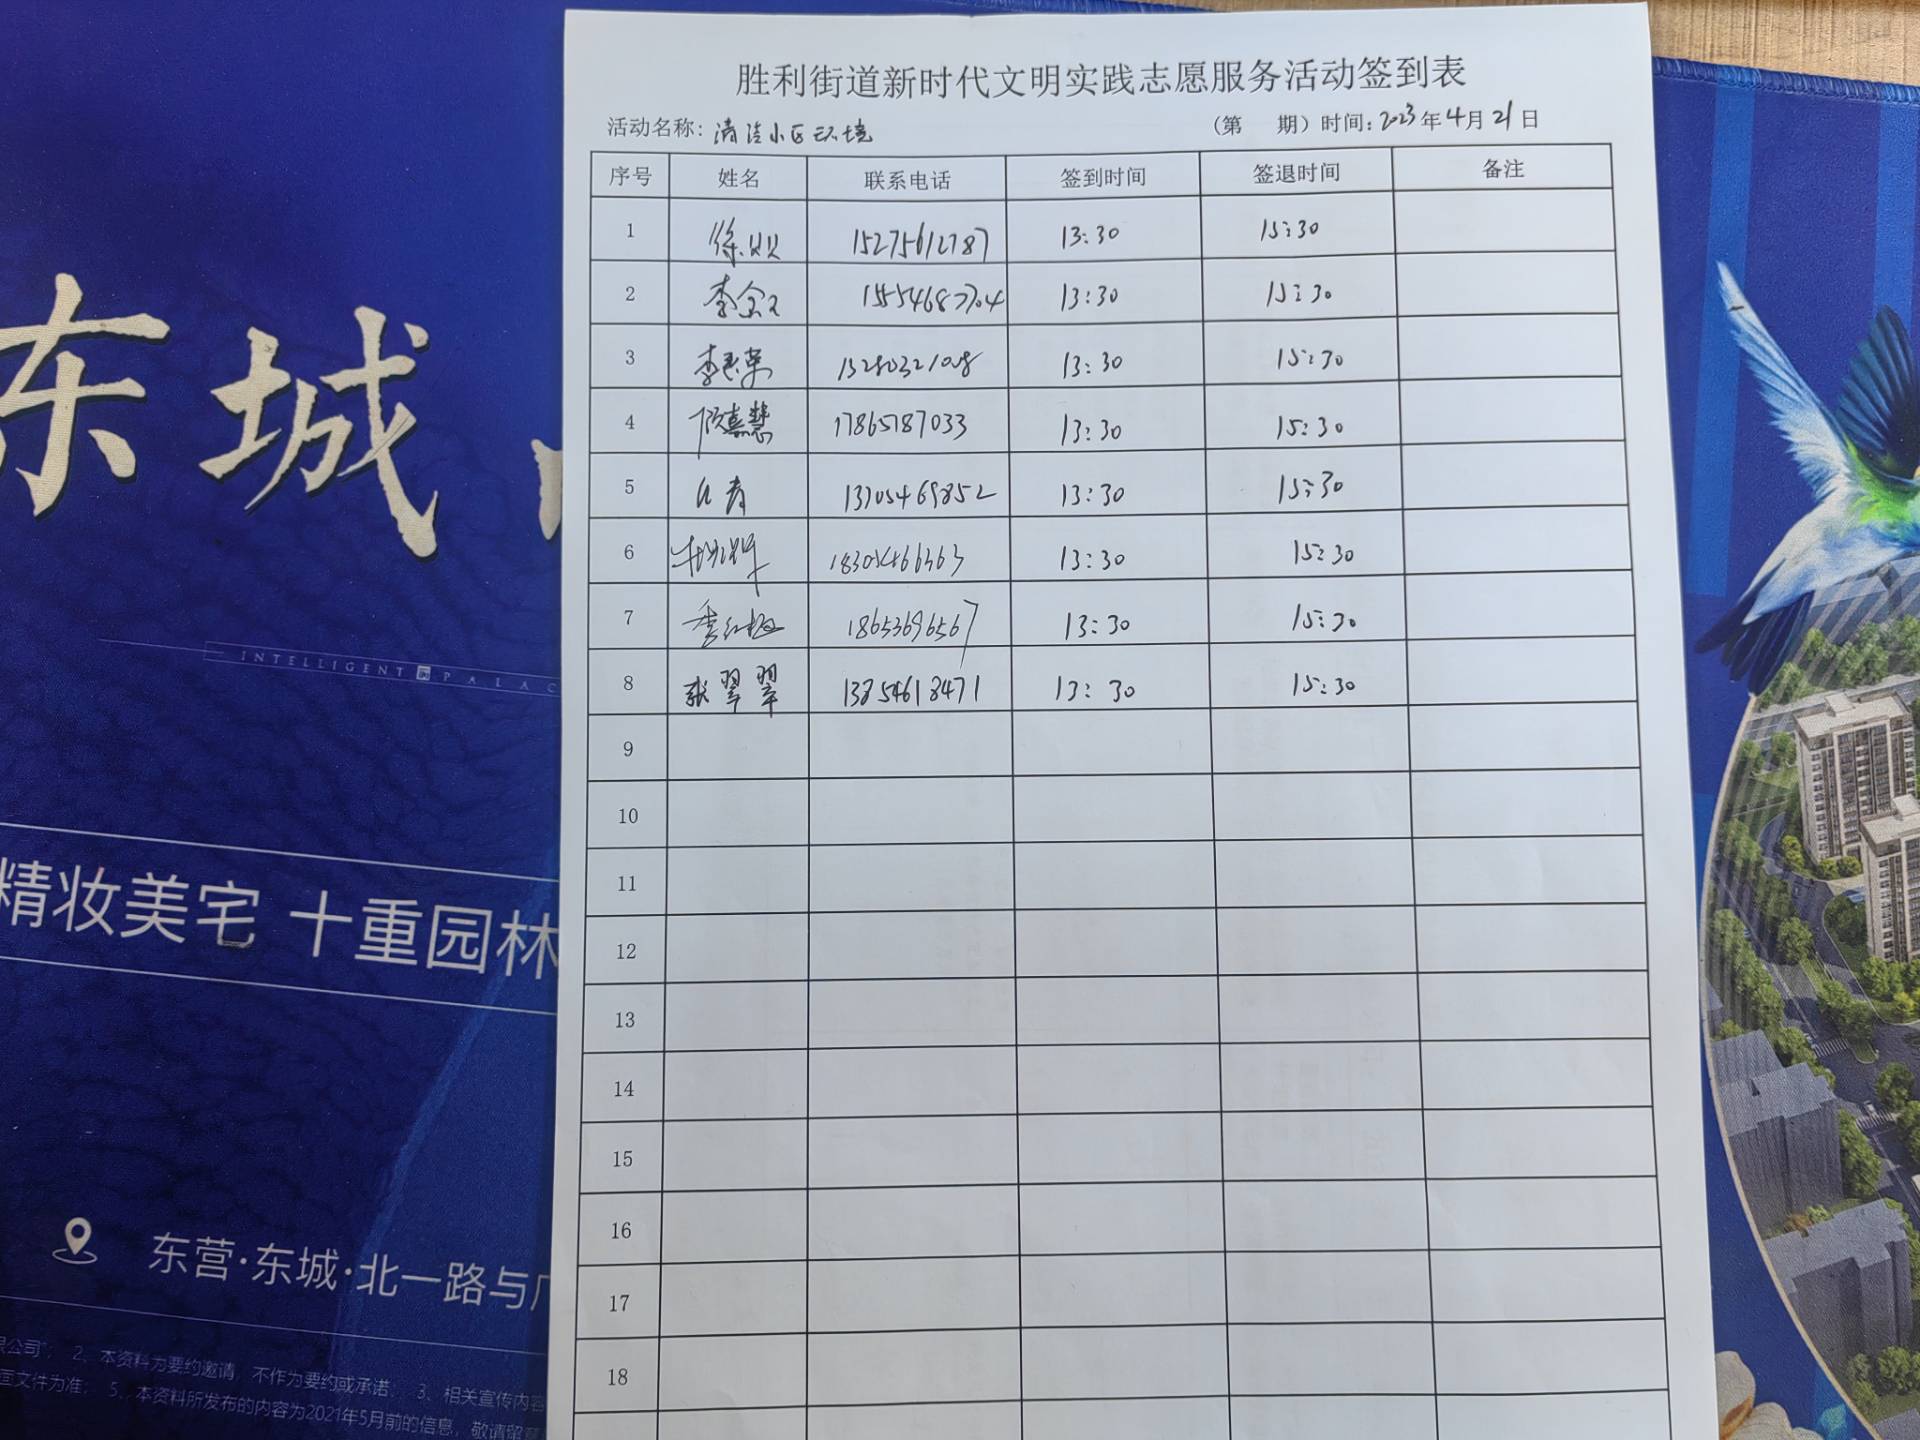 胜利街道新时代文明实践志愿服务活动签到表
活动名称：清洁小区环境 （第 期）时间：2023年4月21日
序号 姓名 联系电话 签到时间 签退时间 备注
1 徐贝 15275612787 13:30 15:30
2 李金 15554687704 13:30 15:30
3 李 荣 15280321028 13:30 15:30
4 熹慧 17865787033 13:30 15:30
5 青 13705469852 13:30 15:30
6 18305466363 13:30 15:30
7 季红梅 18653696567 13:30 15:30
8 张翠翠 13854618471 13:30 15:30
9
10
11
12
13
14
15
16
17
18
东城
INTELLIGENT PALAC
精妆美宅 十重园林
东营·东城·北一路与广
限公司"； 2、本资料为要约邀请，不作为要约或承诺； 3、相关宣传内容
面文件为准； 5、本资料所发布的内容为2021年5月前的信息，敬请留意